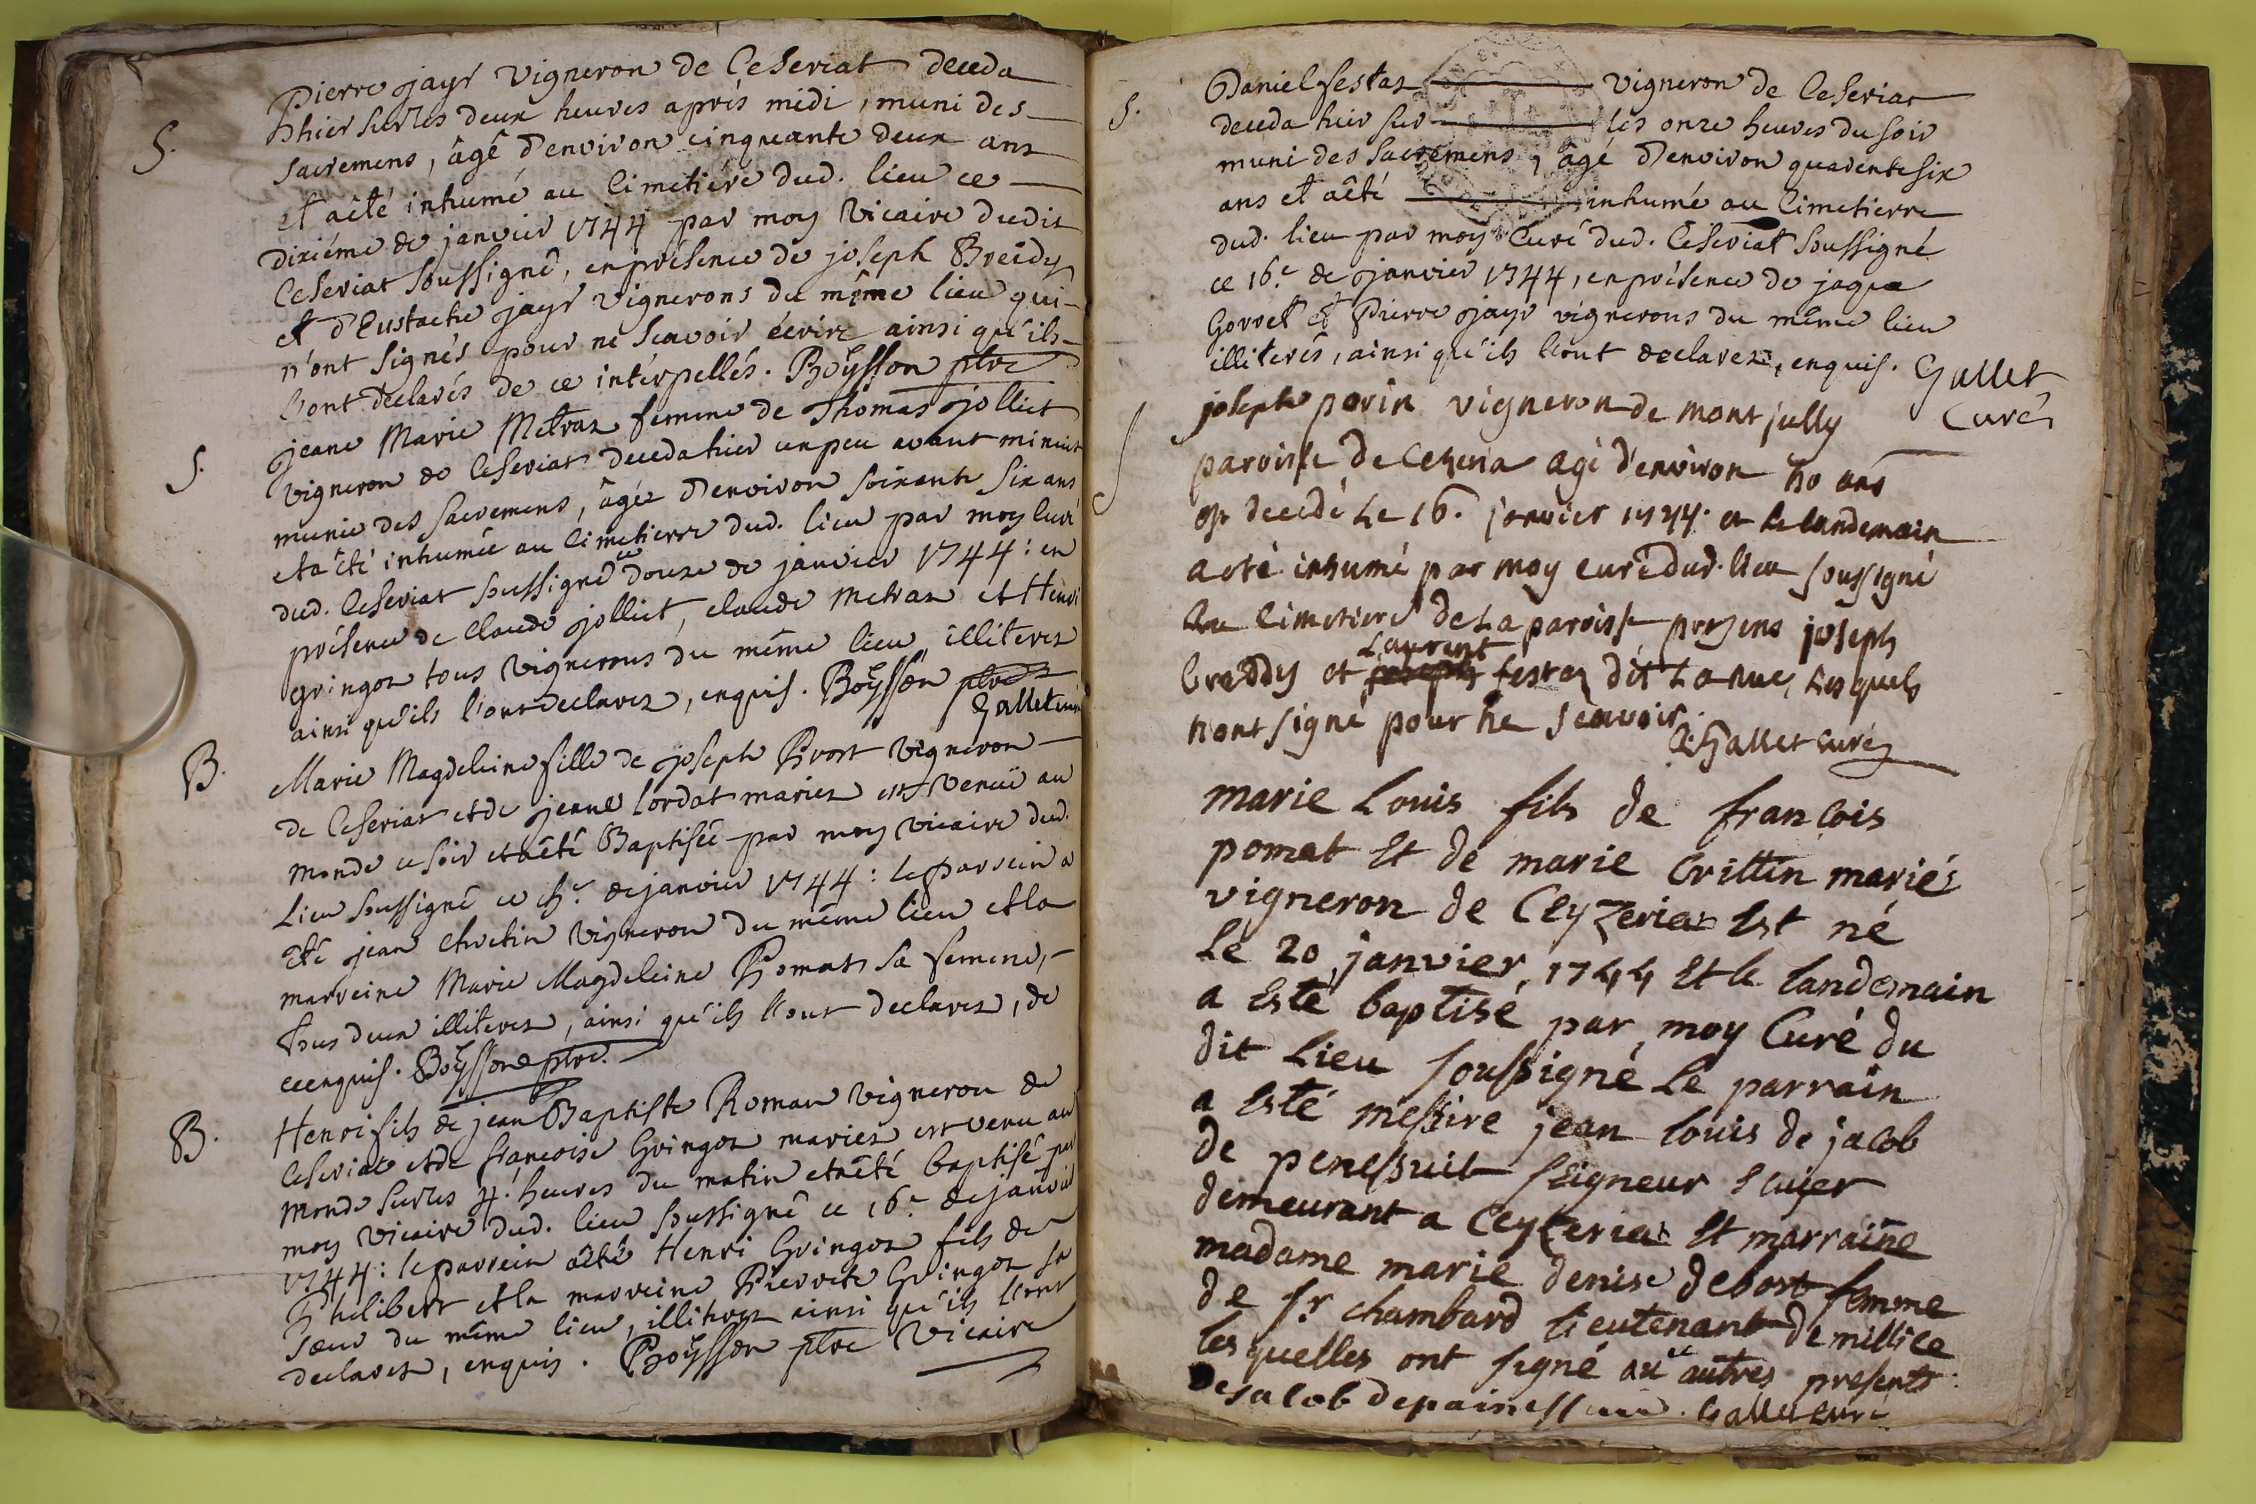 Pierre jayr vigneron de Ceseriat deceda
hier sur les deux heures aprés midi, muni des
S.
sacremens, âgé d'environ cinquante deux ans
et aêté inhumé au Cimetiére dud. lieu ce
dixiéme de janvier 1744 par moy vicaire dudit
Ceseriat soussigné, en présence de joseph Breidy
et d'Eustache jayr vignerons du même lieu qui
n'ont signés pour ne scavoir écrire ainsi qu'ils
l'ont déclarés de ce intérpellés. Boÿsson ptre
jeane Marie Metraz femme de Thomas jolliet
S.
vigneron de Ceseriat deceda hier un peu avant minuit
munie des sacremens, âgée d'environ soixante six ans
et a êté inhumée au Cimetierre dud. lieu par moy curé
dud. Ceseriat soussigné ce douze de janvier 1744: en
présence de Claude jolliet, claude metraz et Henri
gringoz tous vignerons du même lieu, illiterez
ainsi qu'ils l'ont declarez, enquis. Boÿsson ptre
Gallet curé
B.
Marie Magdeleine fille de joseph Brost vigneron
de Ceseriat et de jeane Cordat mariez est venuë au
monde ce soir et aêté Baptisée par moy vicaire dud.
Lieu soussigné ce de janvier 1744: le parrein a
êté jean chretin vigneron du même lieu et la
marreine Marie Magdeleine Pomat sa femme,
tous deux illiterez, ainsi qu'ils l'ont declarez, de
ce enquis. Boÿsson ptre.
B.
Henri fils de jean Baptiste Roman vigneron de
Ceseriat et de francoise Gringoz mariez est venu au
monde sur les 4. heures du matin et aêté baptisé par
moy vicaire dud. lieu soussigné ce 16.e de janvier
1744: le parrein aêté Henri Gringoz fils de
Philibert et la marreine Pierrette Gringoz sa
soeur du même lieu, illiterez ainsi qu'ils l'ont
declarez, enquis. Boÿsson ptre vicaire
S.
Daniel festaz vigneron de Ceseriat
deceda hier sur les onze heures du soir
muni des sacremens, âgé d'environ quarente six
ans et aêté inhumé au Cimetierre
dud. lieu par moy Curé dud. Ceseriat soussigné
ce 16.e de janvier 1744, en présence de jaque
Gorret et Pierre jayr vignerons du même lieu
illiterés, ainsi qu'ils l'ont declarez, enquis. Gallet
Curé
S
joseph perin vigneron de mont jully
paroisse de Cezeria agé d'environ ans
est decedé le 16. janvier 1744. et le landemain
a eté inhumé par moy curé dud. lieu soussigné
au Cimetiere de la paroisse presens joseph
Laurent
breddy et joseph festaz dit La rue, lesquels
n'ont signé pour ne scavoir.
Gallet curé
marie Louis fils de francois
pomat Et de marie Crittin mariés
vigneron de Ceyzeriat Est né
le 20 janvier 1744 Et le landemain
a Esté baptisé par moy Curé du
dit Lieu soussigné Le parrain
a Esté messire jean louis de jacob
de penessuit seigneur Ecuier
demeurant a Ceyzeriat Et marraine
madame marie denise debost femme
de sr chambard lieutenant de millice
lesquelles ont signé au autres presents
De jacob Gallet curé